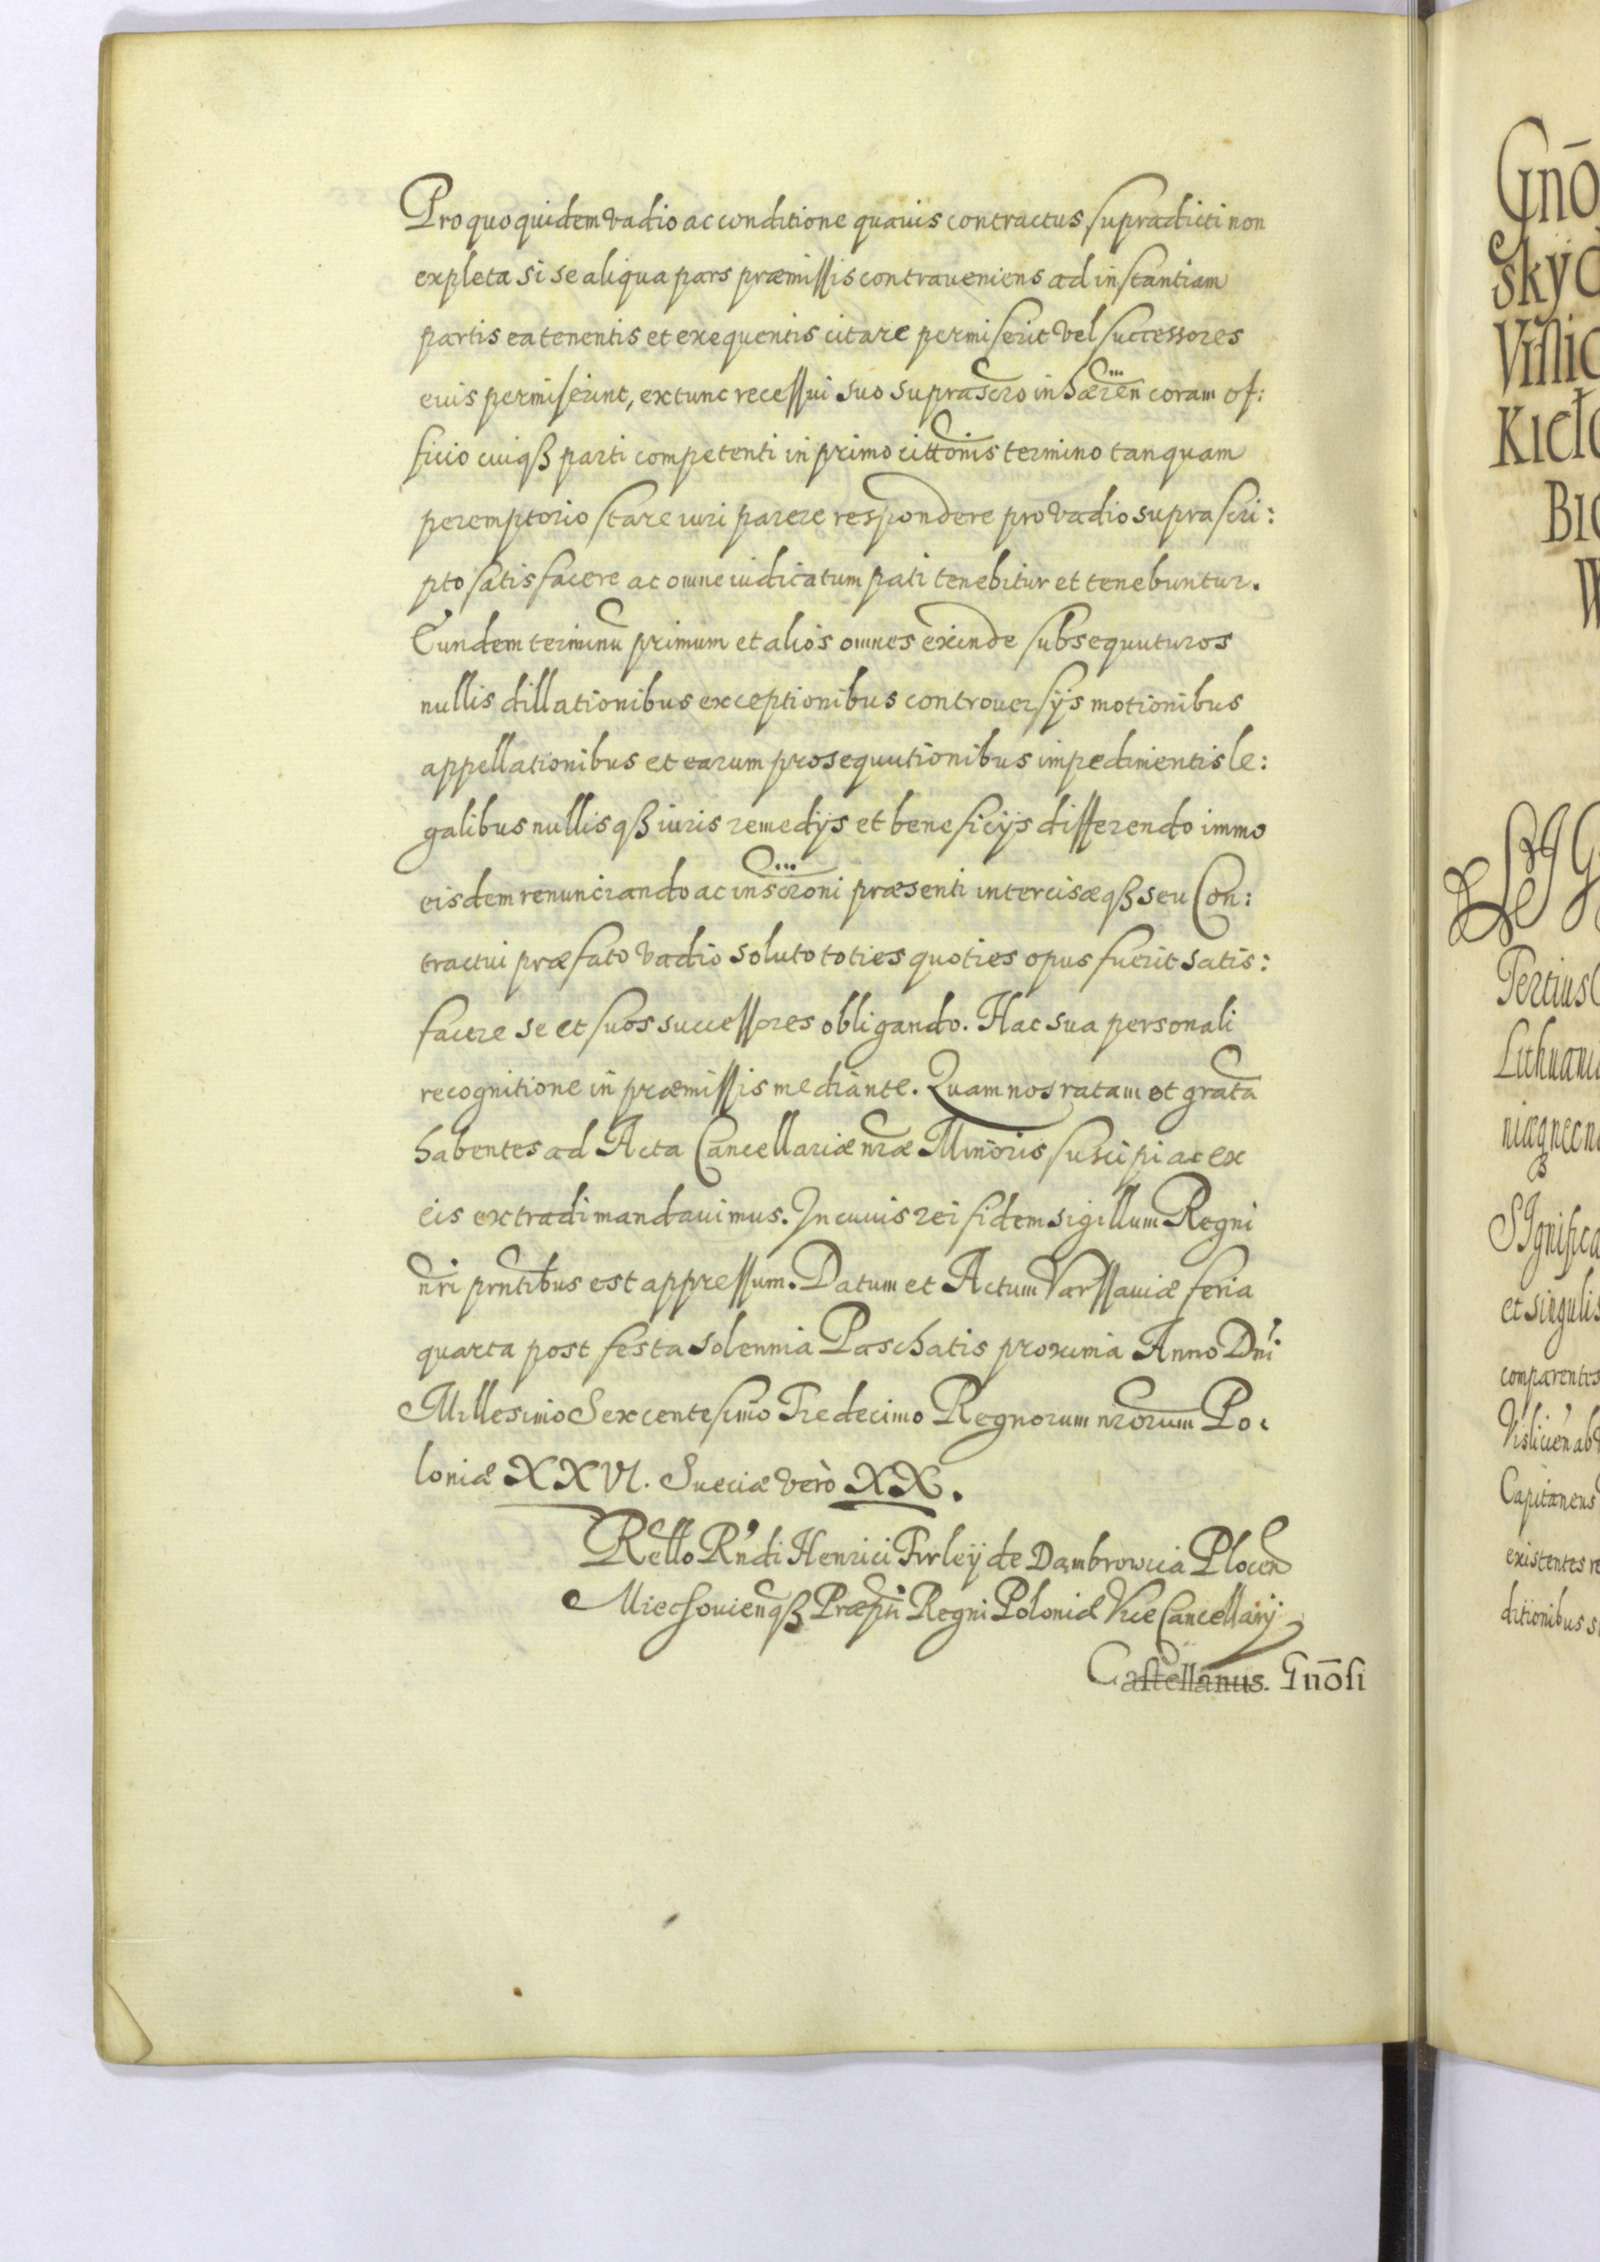 Pro quo quidem vadio ac conditione quavis contractus supradicti non
expleta si se aliqua pars præmissis contraveniens ad instantiam
partis ea tenentis et exequentis citare permiserit vel successores
eius permiserint, extunc recessui suo suprascro inhæren coram of:
ficio cuiqß parti competenti in primo cittonis termino tanquam
peremptorio stare iuri parere respondere pro vadio suprascri:
pto satisfacere ac omne iudicatum pati tenebitur et tenebuntur.
Eundem terminū primum et alios omnes exinde subsequuturos
nullis dillationibus exceptionibus controversÿs motionibus
appellationibus et earum prosequutionibus impedimentis le:
galibus nullisqß iuris remedÿs et beneficÿs differendo immo
eisdem renunciando ac inscroni præsenti intercisæqß seu Con:
tractui præfato vadio soluto toties quoties opus fuerit satis:
facere se et suos successores obligando. Hac sua personali
recognitione in præmissis mediante. Quam nos ratam et grata
habentes ad Acta Cancellariæ nræ Minoris suscipi ac ex
eis extradi mandavimus. In cuius rei fidem sigillum Regni
nri prntibus est appressum. Datum et Actum Varssaviæ feria
quarta post festa solennia Paschatis proxima Anno Dni
Millesimo Sexcentesimo Tredecimo Regnorum nrorum Po:
loniæ XXVI. Sueciæ verò XX.
Rello Rndi Henrici Firleÿ de Dambrowica Plocen
Miechoviensqß Præpti Regni Poloniæ Vice Cancellarÿ
Castellanus. Gnōsi
Gnō
skÿ
Vislic
Kiel
Bi
W
Tertius
Lithuani
Significa
et singulis
comparentes
Vislicien ab
Capitaneus
existentes re
ditionibus s